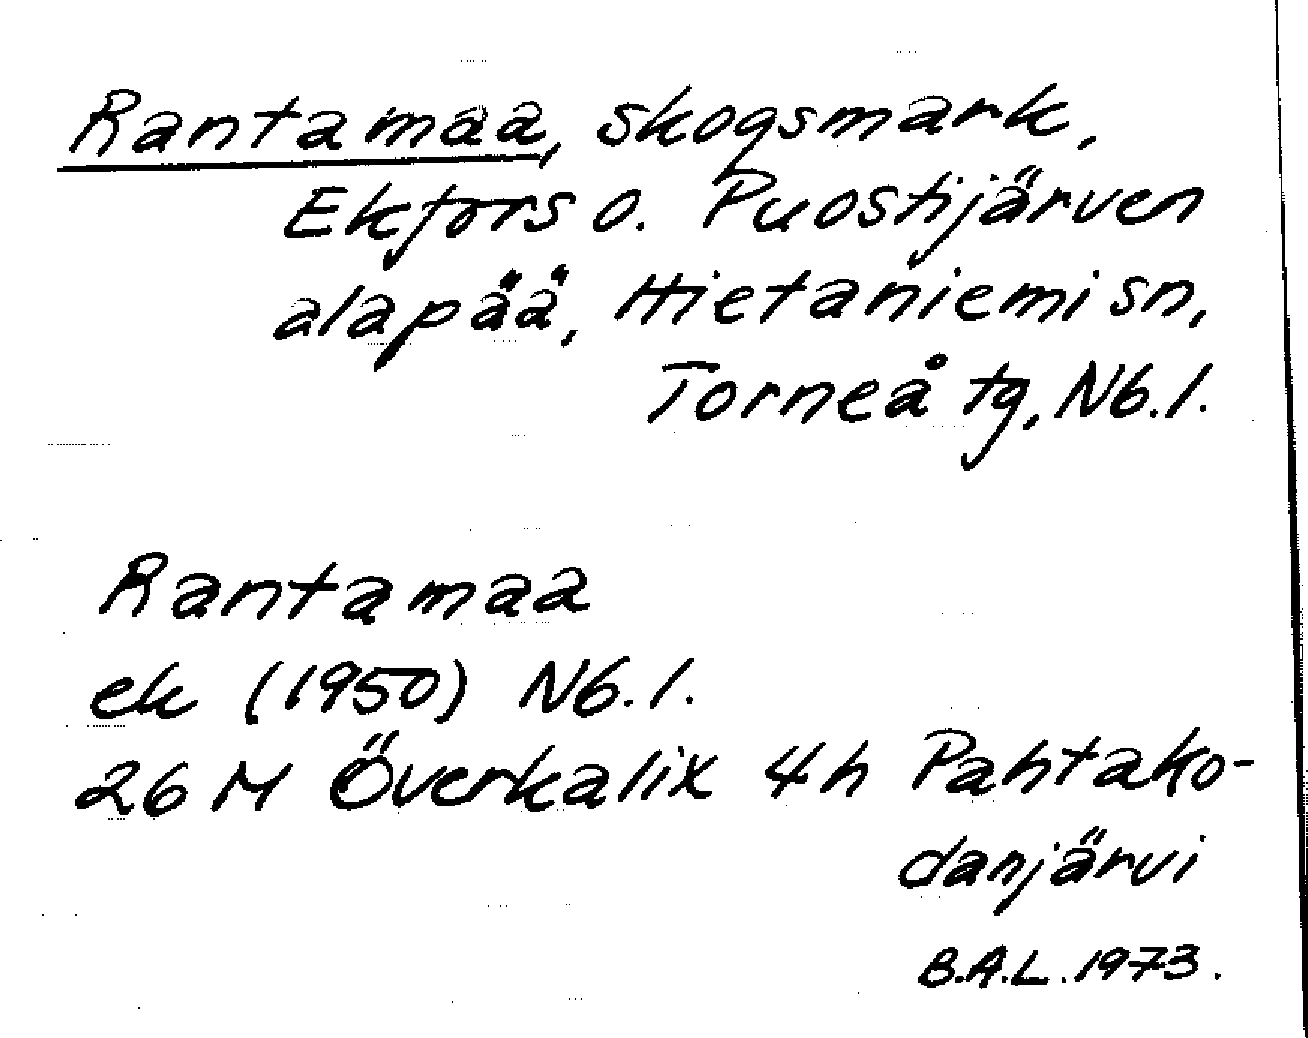 Rantamaa, skogsmark,
Ekfors o. Puostijärven
alapää, Hietaniemi sn,
Torneå tg, Nb.l.
Rantamaa
ek (1950) Nb.l.
26 M Överkalix 4h Pahtako-
danjärvi
B.A.L. 1973.